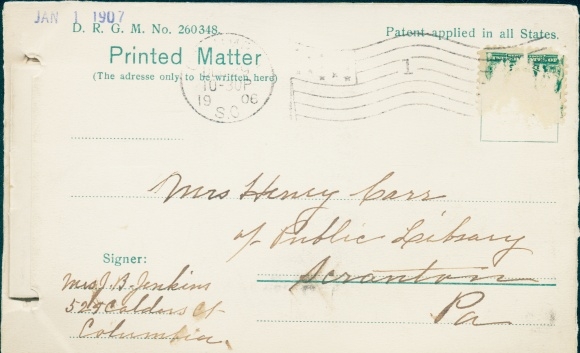 JAN 1 1907
D. R. G. M. No. 260348.
Patent applied in all States.
Printed Matter
(The adresse only to be written here)
10-30P
1906
S.C
1
Mrs Henry Carr
of Public Library
Scranton
Pa
Signer:
Mrs J. B. Jenkins
529 Calders Ct
Columbia.